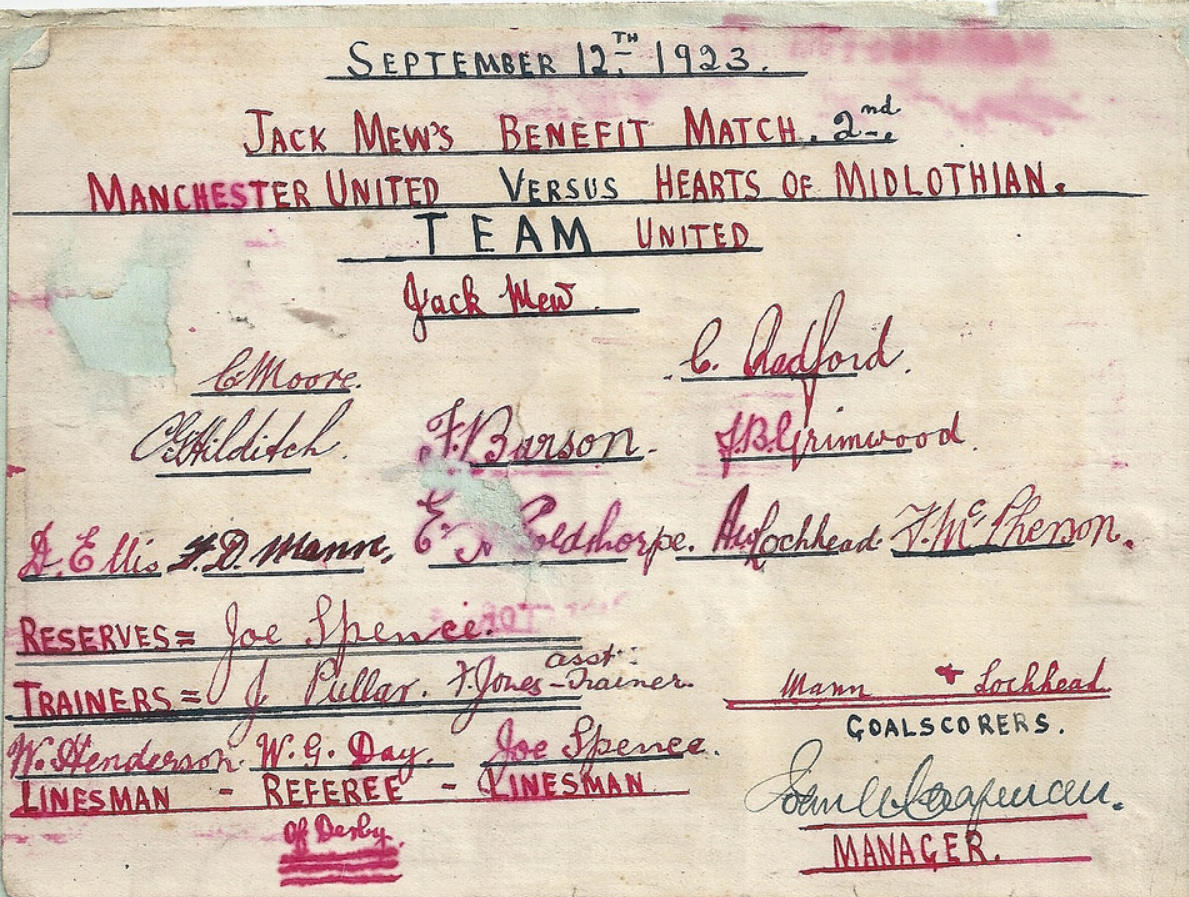 SEPTEMBER 12TH. 1923.
JACK MEW'S BENEFIT MATCH. 2nd.
MANCHESTER UNITED VERSUS HEARTS OF MIDLOTHIAN.
TEAM UNITED
Jack Mew.
C. Moore. C. Radford.
C G Hilditch. F. Barson. J.B. Grimwood.
D. Ellis F. D. Mann. E. Goldthorpe. A W Lochhead. F. McPherson.
RESERVES = Joe Spence.
TRAINERS = J. Pullar. F. Jones - asst: Trainer.
Mann + Lochhead
GOALSCORERS.
W. Henderson. W. G. Day. Joe Spence.
LINESMAN - REFEREE - LINESMAN
of Derby.
John A Chapman.
MANAGER.